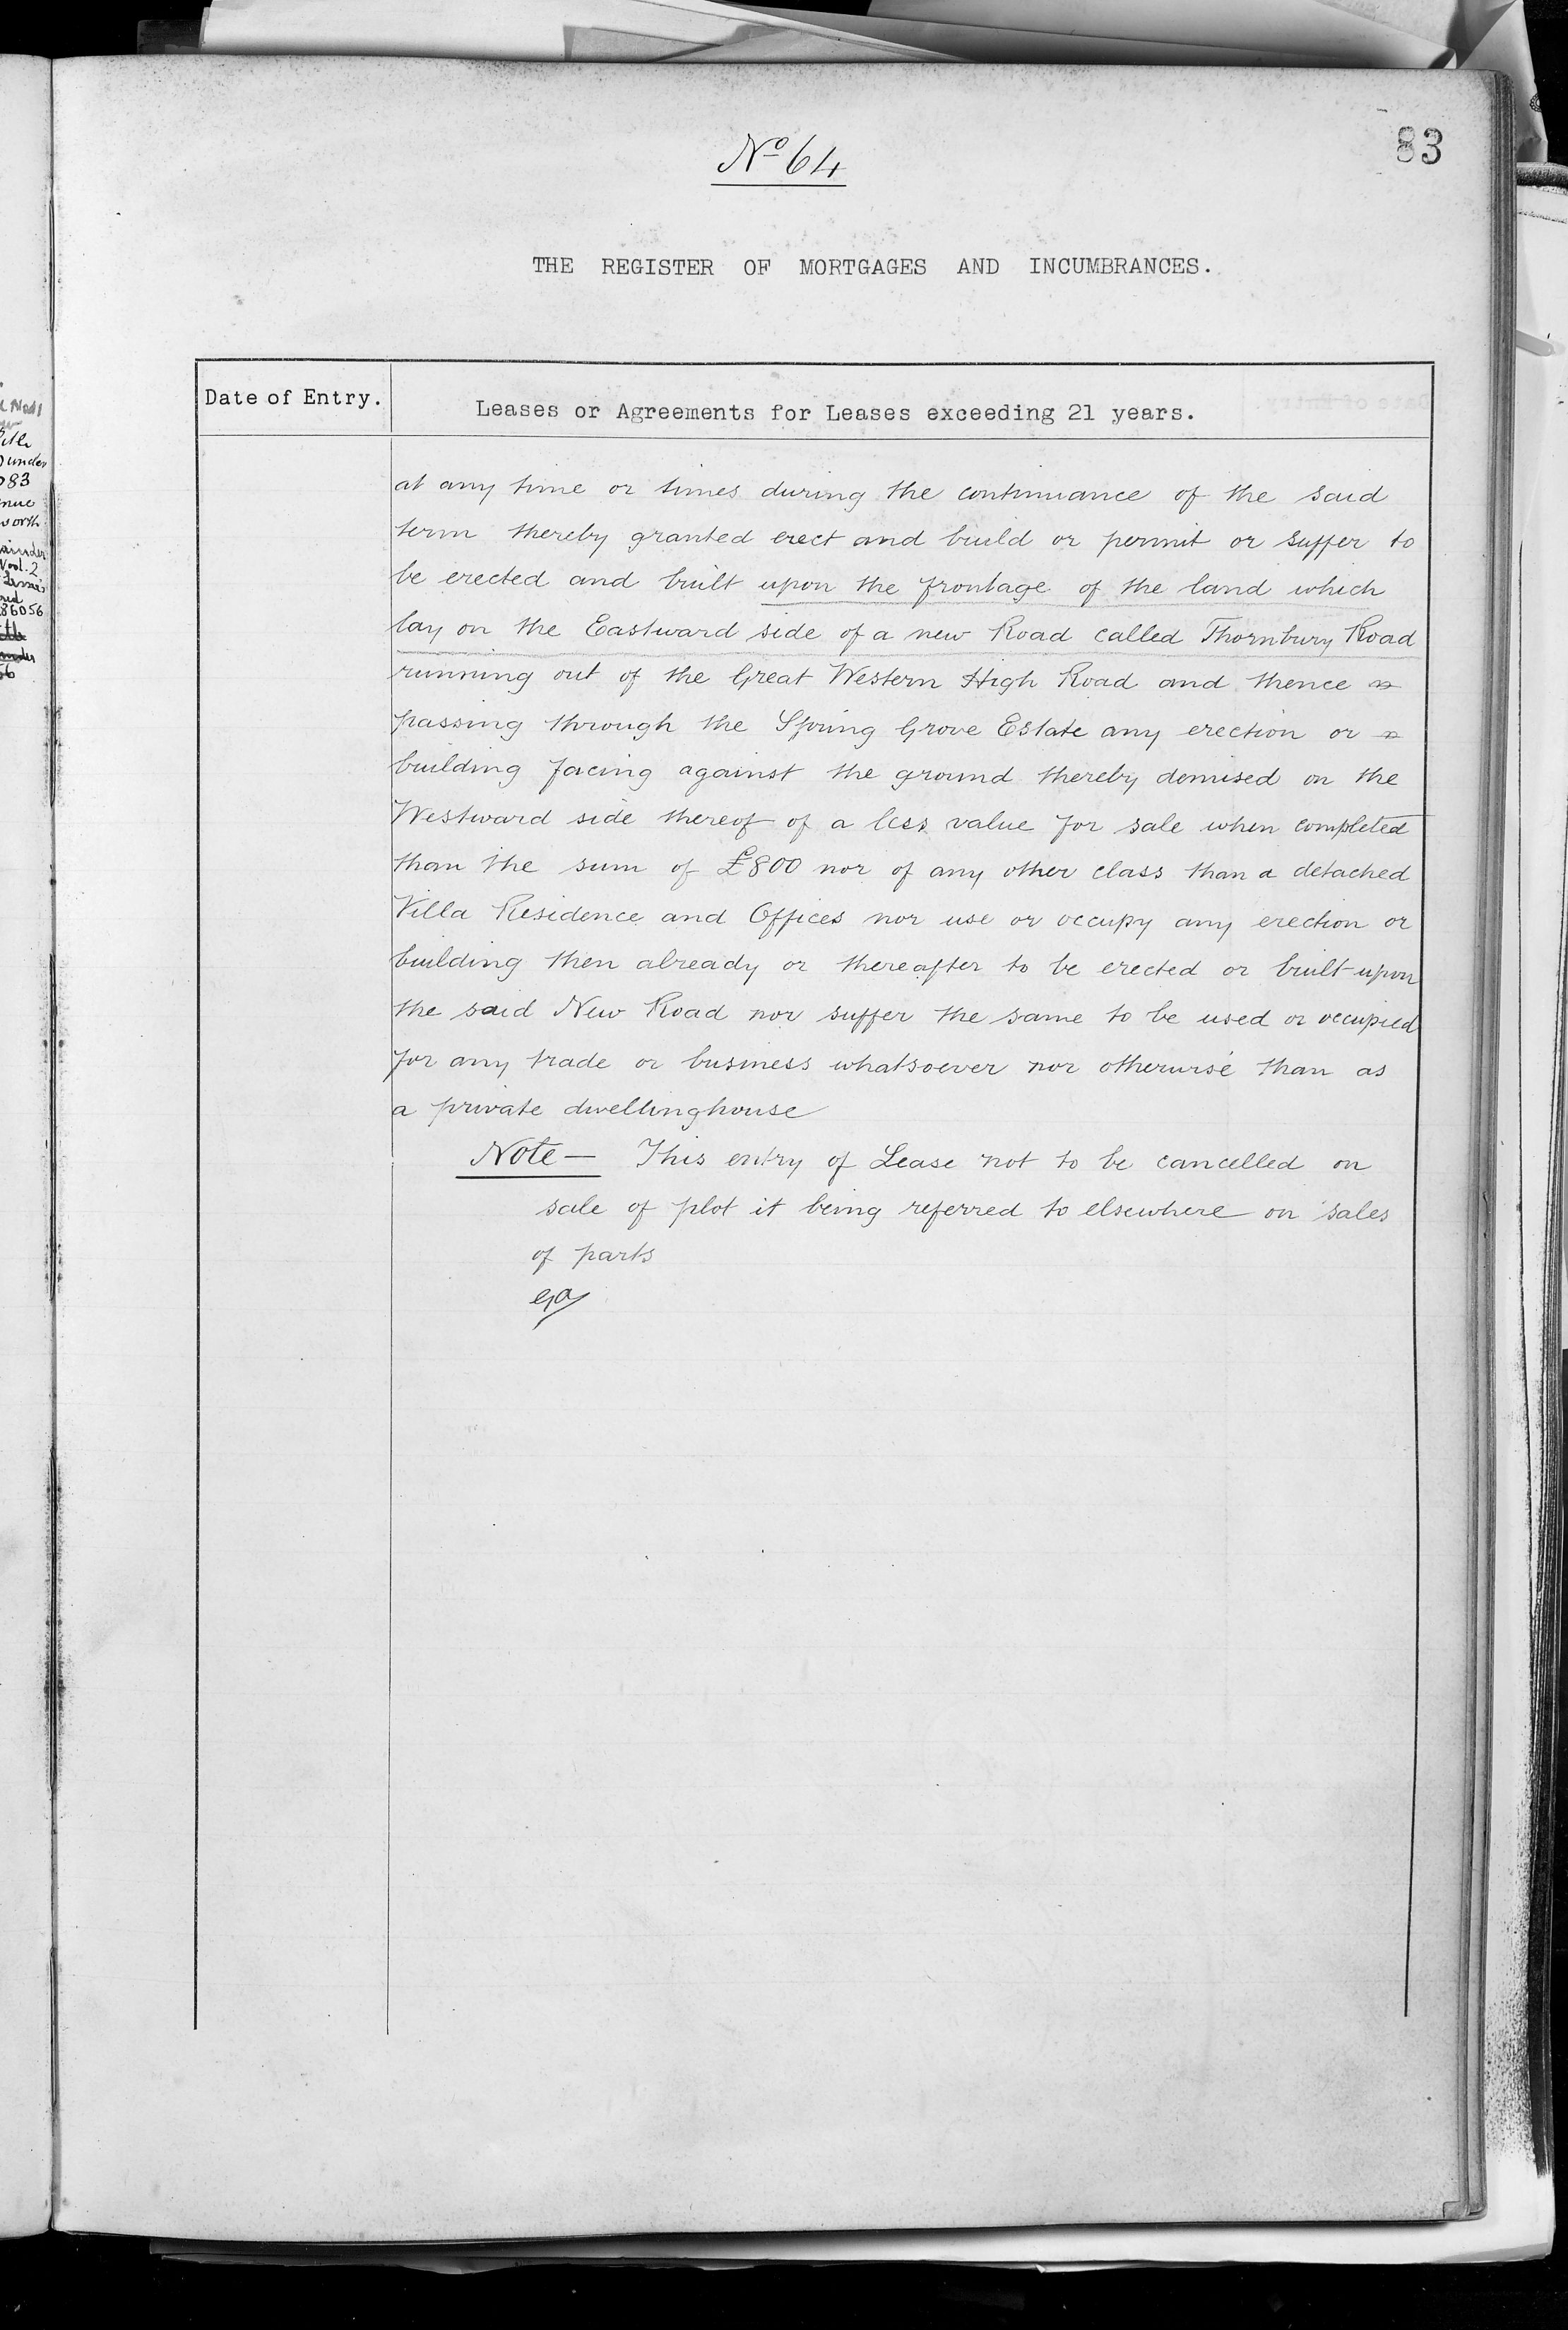 83
Nº 64
THE REGISTER OF MORTGAGES AND INCUMBRANCES.
Date of Entry.
Leases or Agreements for Leases exceeding 21 years.
at any time or times during the continuance of the said
term thereby granted erect and build or permit or suffer to
be erected and built upon the frontage of the land which
lay on the Eastward side of a new Road called Thornbury Road
running out of the Great Western High Road and thence
passing through the Spring Grove Estate any erection or
building facing against the ground thereby demised on the
Westward side thereof of a less value for sale when completed
than the sum of £800 nor of any other class than a detached
Villa Residence and Offices nor use or occupy any erection or
building then already or thereafter to be erected or built upon
the said New Road nor suffer the same to be used or occupied
for any trade or business whatsoever nor otherwise than as
a private dwellinghouse
Note — This entry of Lease not to be cancelled on
sale of plot it being referred to elsewhere on sales
of parts
under
83
worth
2
86056